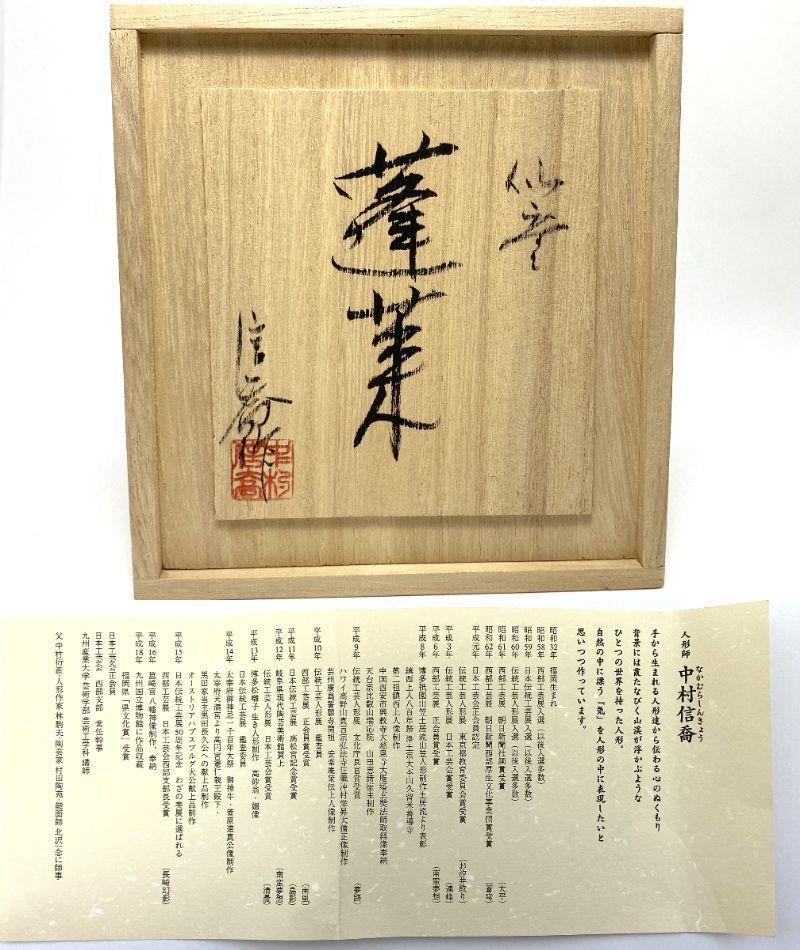 仙童
蓬莱
信喬作
人形師 中村信喬
なかむらしんきょう
手から生まれる人形達から伝わる心のぬくもり
背景には霞たなびく山渓が浮かぶような
ひとつの世界を持った人形。
自然の中に漂う「気」を人形の中に表現したいと
思いつつ作っています。
昭和32年 福岡生まれ
昭和58年 西部工芸展入選(以後入選多数)
昭和59年 日本伝統工芸展入選(以後入選多数)
昭和60年 伝統工芸人形展入選(以後入選多数)
昭和61年 西部工芸展 朝日新聞社銅賞受賞 (太平)
昭和62年 西部工芸展 朝日新聞西部厚生文化事業団賞受賞
平成元年 日本工芸会正会員認定
伝統工芸人形展 東京都教育委員会賞受賞 (お汐井取り)
平成3年 伝統工芸人形展 日本工芸会賞受賞
平成6年 西部工芸展 正会員賞受賞 (南蛮夢想)
平成8年 博多祇園山笠土居流山笠人形制作土居流より表彰
鎮西上人八百年祭浄土宗大本山久留米善導寺
第二祖鎮西上人像制作
中国西安市興教寺大慈恩寺大雁塔玄奘法師取経像奉納
天台宗比叡山瑞応院 山田恵諦座主制作
平成9年 伝統工芸人形展 文化庁長官賞受賞 (夢路)
ハワイ高野山真言宗弘法寺住職沖村栄昇大僧正像制作
芸州廣島誓願寺開祖 安楽庵策伝上人像制作
平成10年 伝統工芸人形展 鑑査員
西部工芸展 正会員賞受賞 (南風)
平成11年 日本伝統工芸展 高松宮記念賞受賞
平成12年 岐阜県現代陶芸美術館買上 (南蛮夢想)
伝統工芸人形展 日本工芸会賞受賞 (清晨)
平成13年 博多松囃子 生き人形制作 高砂翁・媼像
日本伝統工芸展 鑑査委員
平成14年 太宰府御神忌一千百年大祭 御神牛・菅原道真公像制作
太宰府天満宮より高円宮憲仁親王殿下・
黒田家当主黒田長久公への献上品制作
オーストリアハプスブルグ大公献上品制作
平成15年 日本伝統工芸展50周年記念 わざの美展に選ばれる
西部工芸展 日本工芸会西部支部長受賞 (長崎幻影)
平成16年 筥崎宮 八幡神像制作、奉納
平成18年 九州国立博物館に作品収蔵
福岡県「県文化賞」受賞
日本工芸会正会員
日本工芸会 西部支部 常任幹事
九州産業大学 芸術学部 芸術工学科 講師
父 中村衍涯・人形作家 林駒夫・陶芸家 村田陶苑・能面師 北沢一念に師事